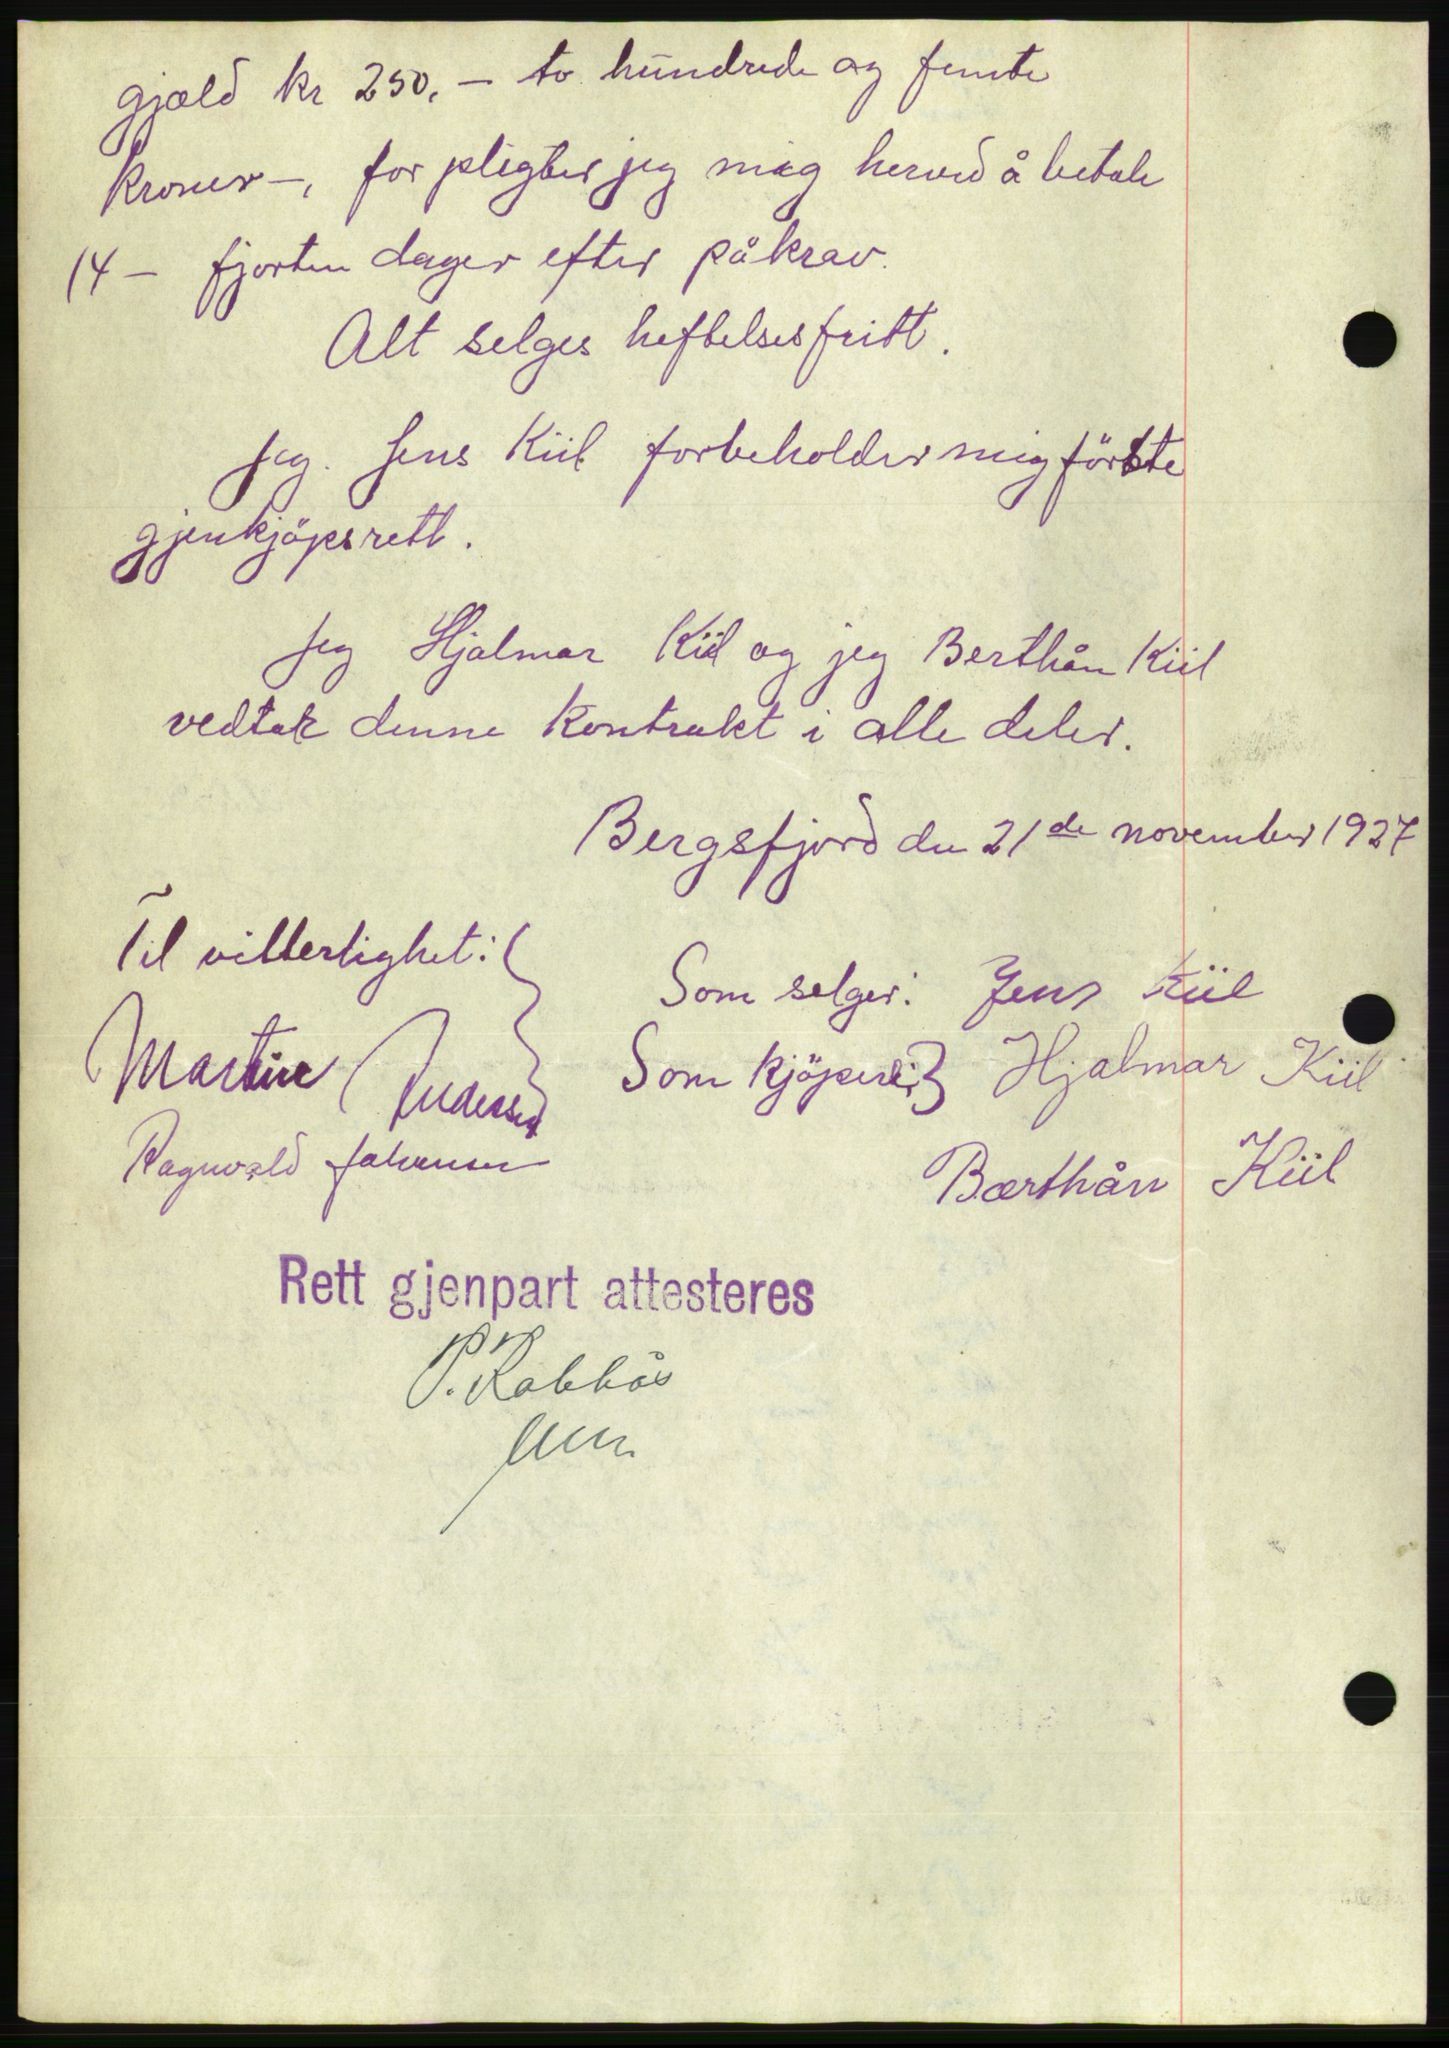 gjæld kr 250.- to hundrede og femti
kroner -, forpligter jeg mig herved å betale
14 - fjorten dager efter påkrav.
Alt selges heftelsesfritt.
Jeg. Jens Kiil forbeholder mig förste
gjenkjöpsrett.
Jeg Hjalmar Kiil og jeg Berthån Kiil
vedtar denne kontrakt i alle deler.
Bergsfjord den 21de november 1927
Til vitterlighet:
Som selger: Jens Kiil
Martin Andersen
Som kjöpere: Hjalmar Kiil
Ragnvald Johansen
Bærthån Kiil
Rett gjenpart attesteres
P. Rabbås